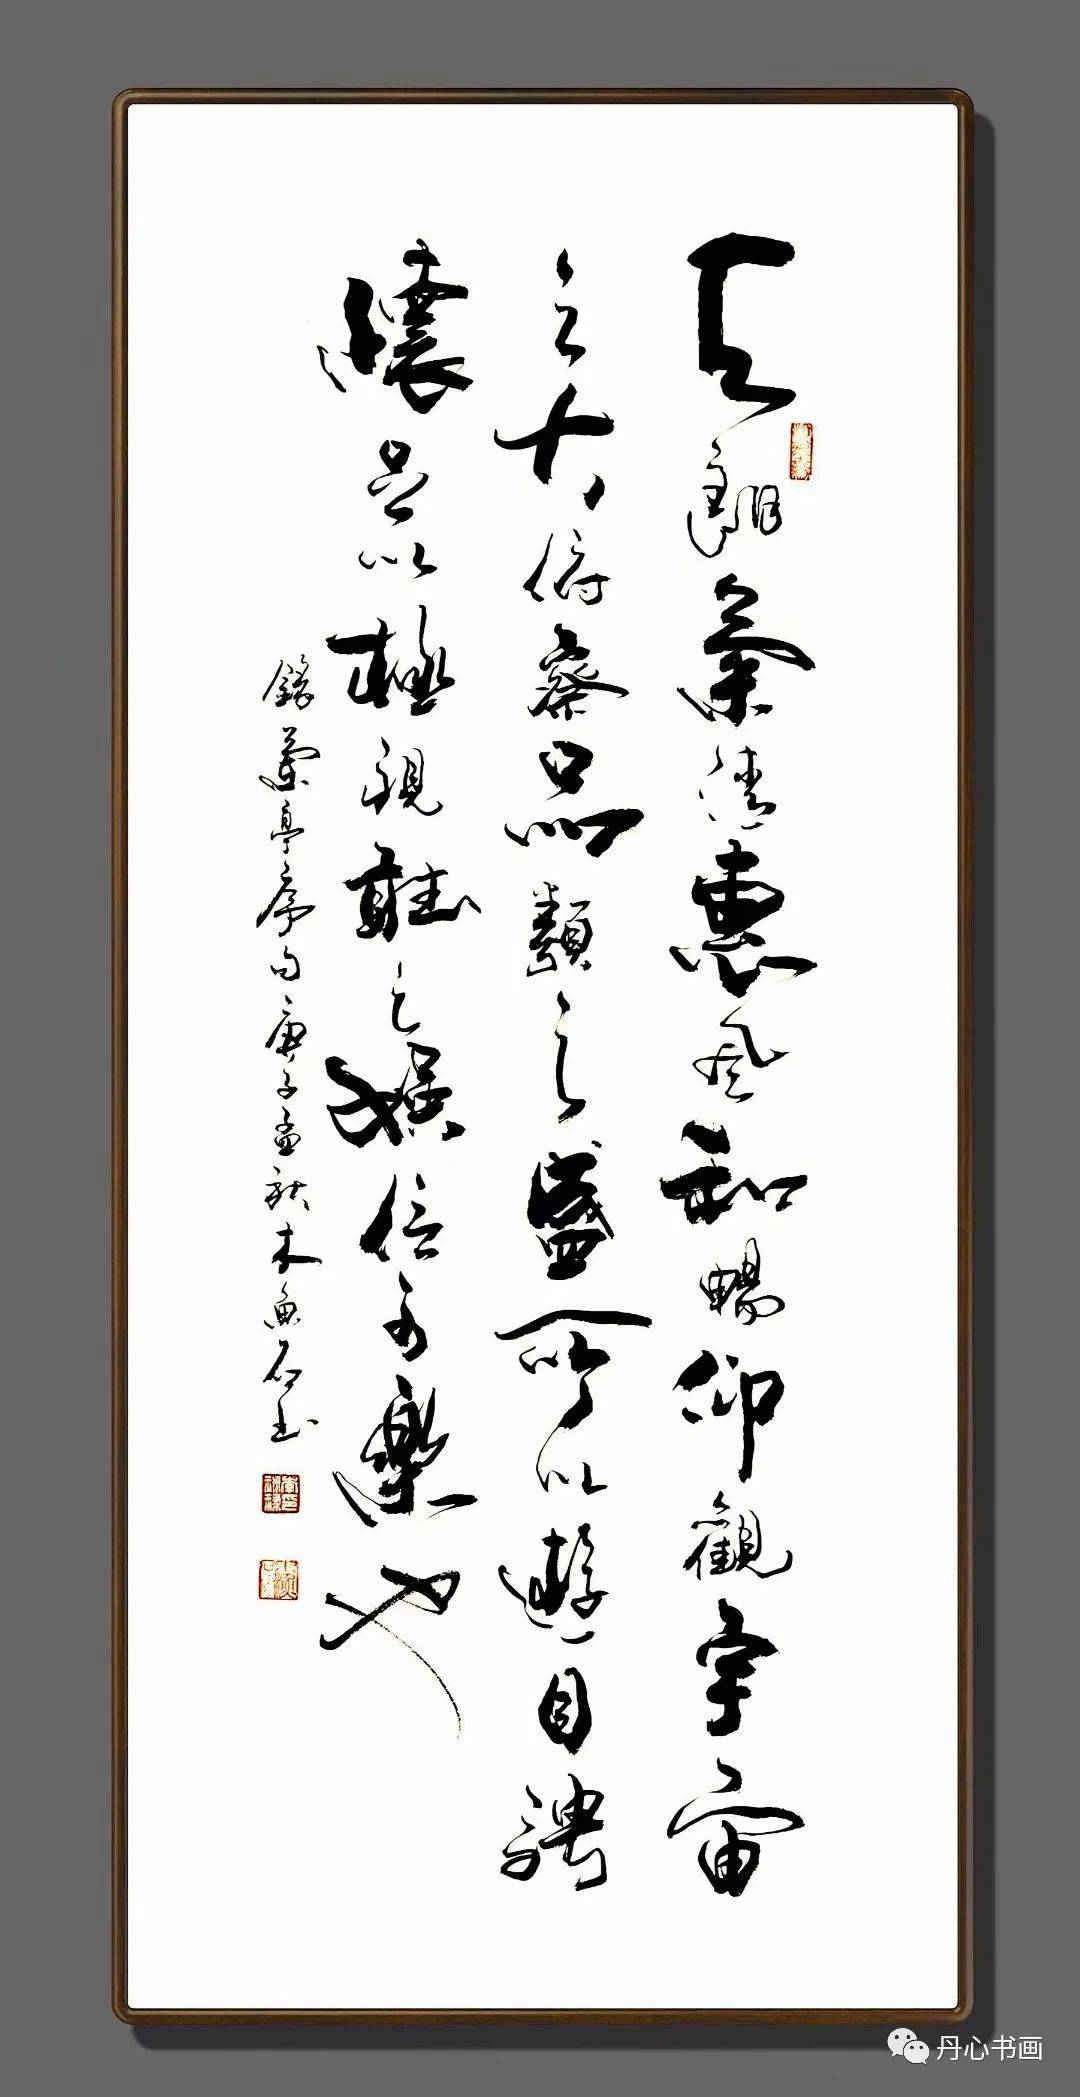 天朗氣清惠風和暢仰觀宇宙
之大俯察品類之盛所以遊目騁
懷足以極視聽之娛信可樂也
錄蘭亭序句庚子孟秋木魚石玉
丹心书画